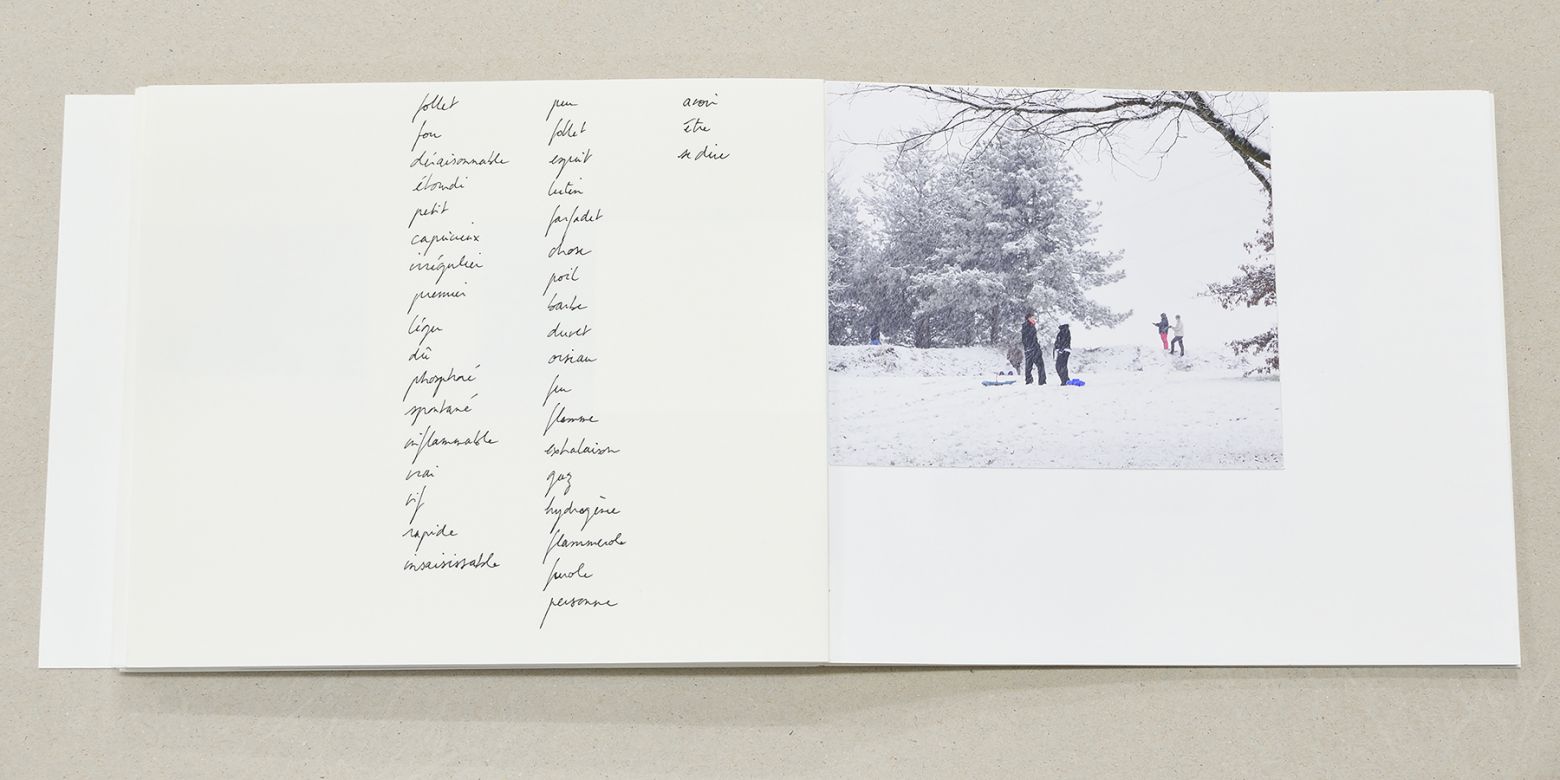 follet
fou
déraisonnable
étourdi
petit
capricieux
irrégulier
premier
léger
dû
phosphoré
spontané
inflammable
vrai
vif
rapide
insaisissable
follet
esprit
lutin
farfadet
chose
poil
barbe
duvet
oiseau
feu
flamme
exhalaison
gaz
hydrogène
flammerole
furole
personne
avoir
être
se dire